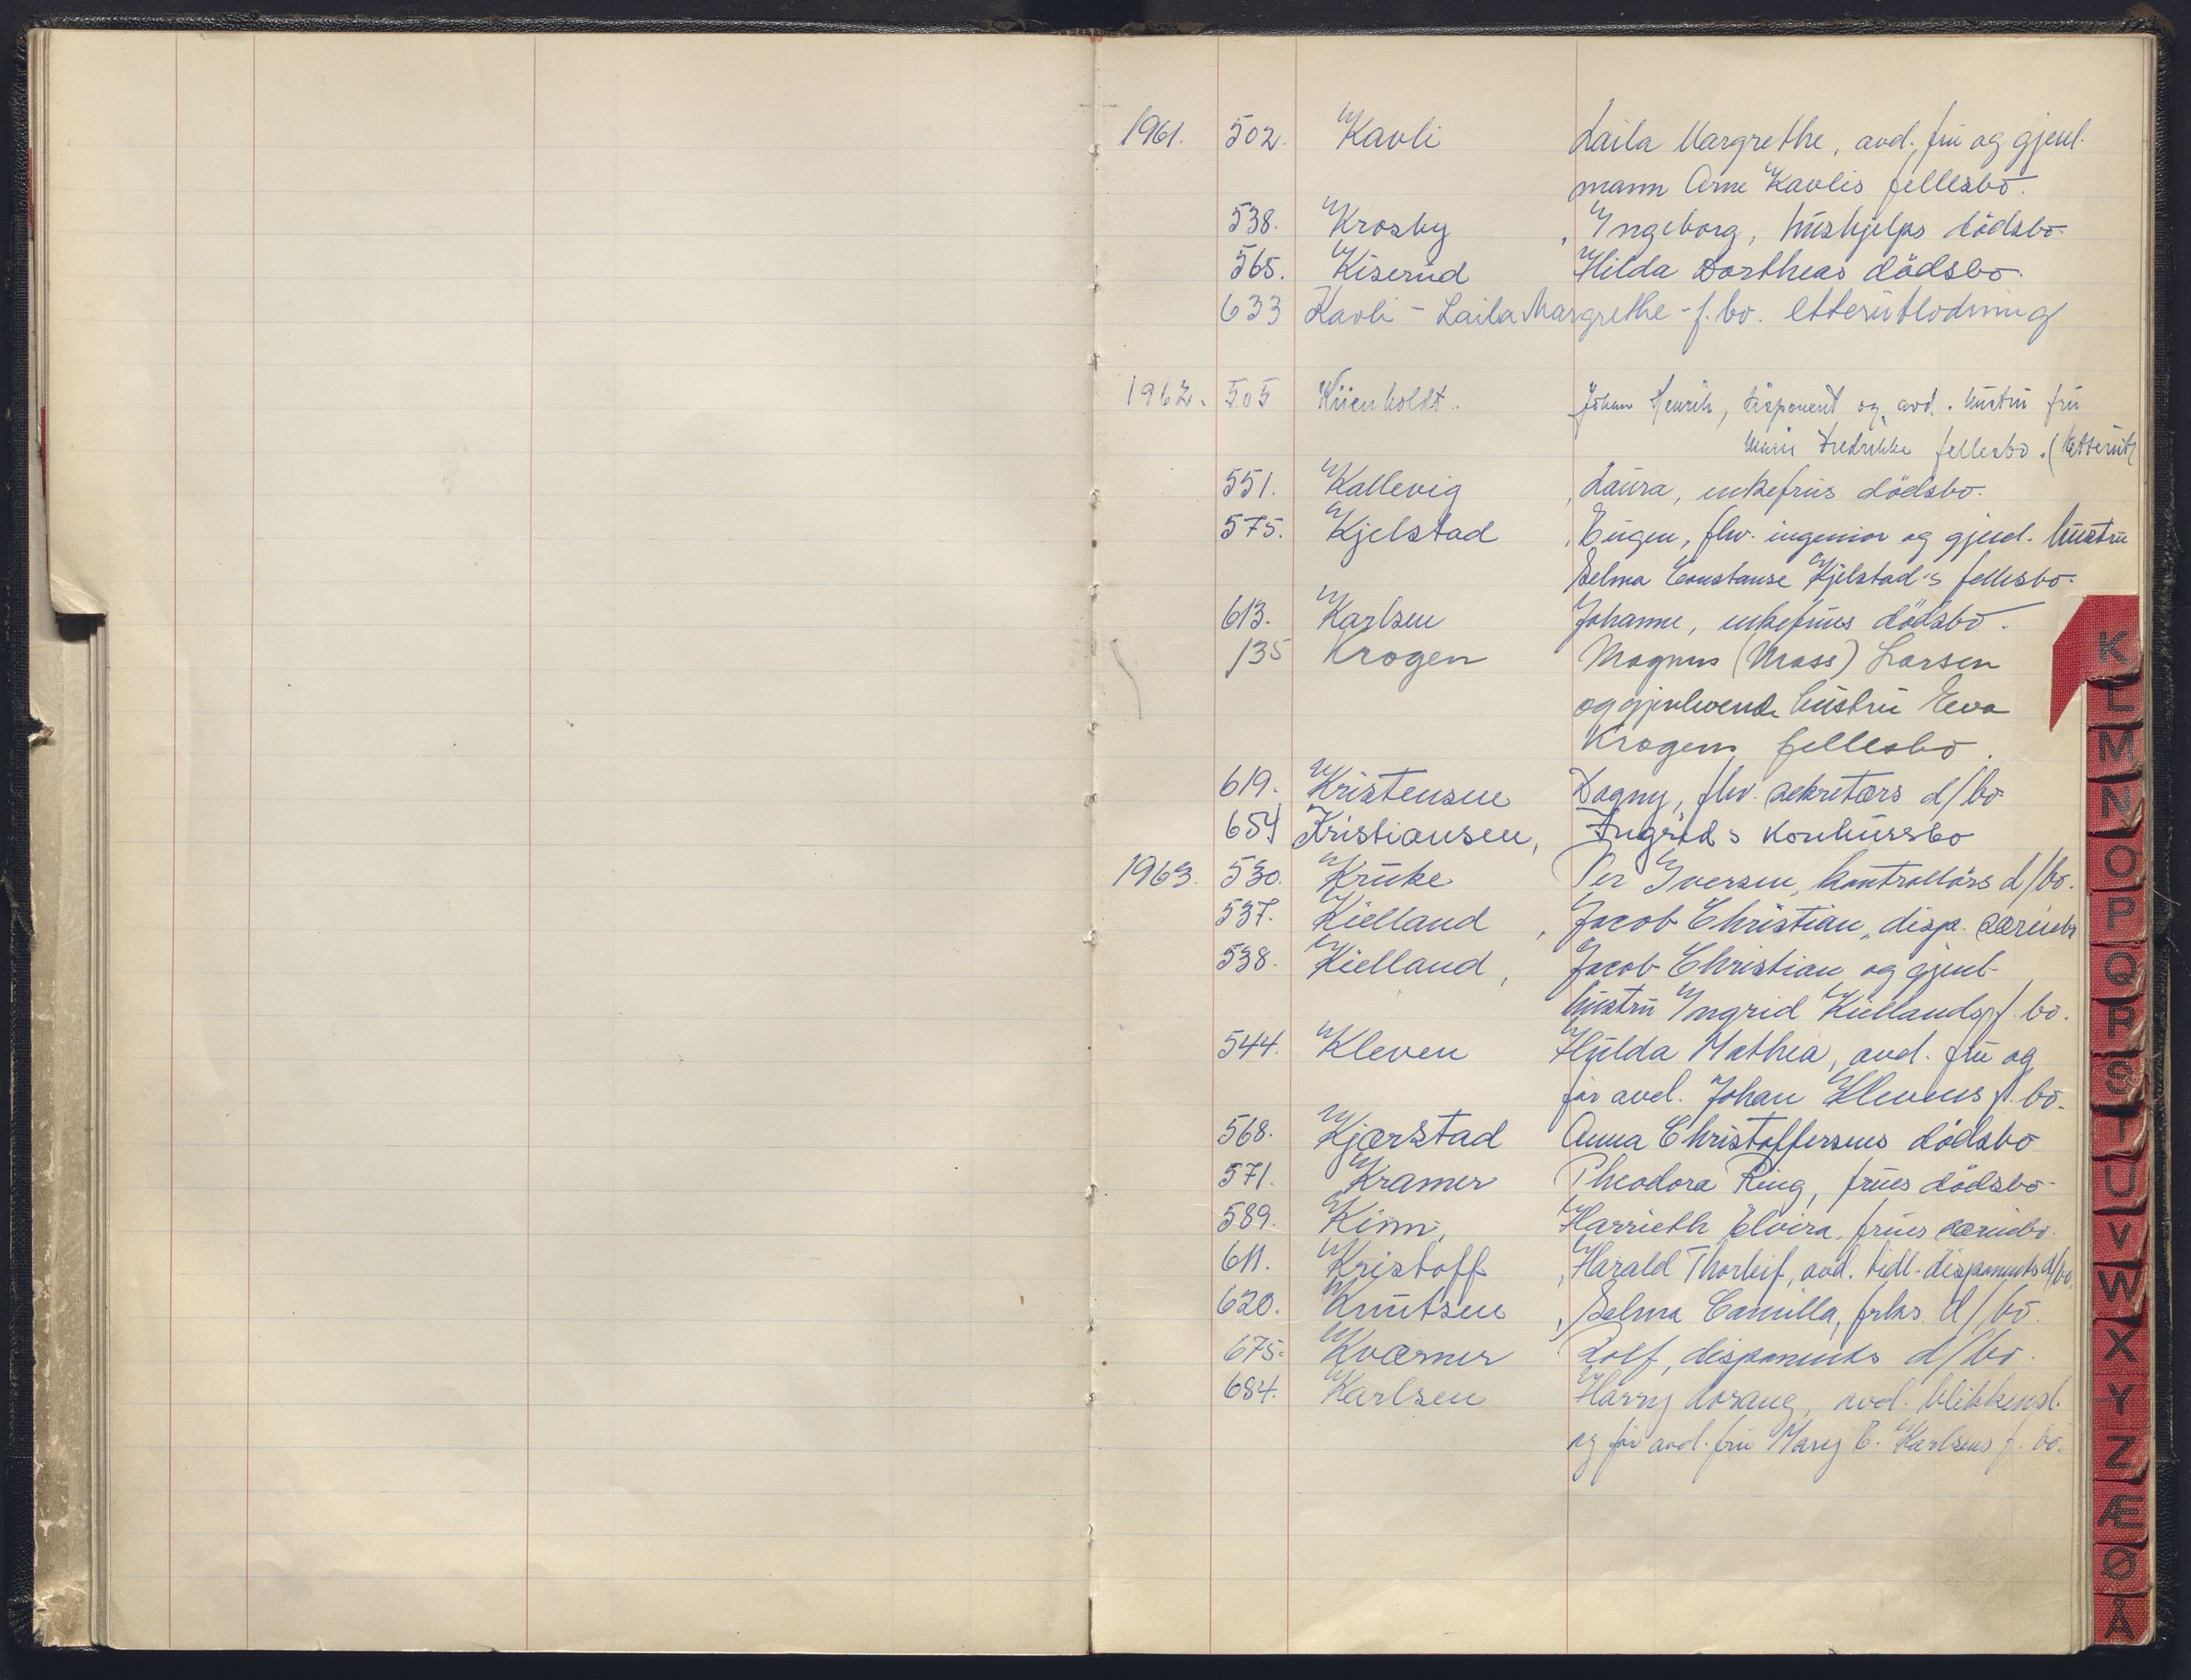 1961. 502. Kavli Laila Margrethe, avd. fru og gjenl.
mann Arne Kavlis fellesbo.
538. Krosby , Ingeborg, hushjelps dödsbo.
565. Kiserud Hilda Dortheas dödsbo.
633 Kavli - Laila Margrethe - f. bo. etterutlodning
1962. 505 Kiienholdt. Johan Henrik, disponent og avd. hustru fru
Marie Fredrikke fellesbo. (Etterutl
551. Kallevig , Laura, enkefrus dödsbo.
575. Kjelstad , Eugen, fhv. ingeniør og gjenl. hustru
Selma Constanse Kjelstad's fellesbo.
613. Karlsen Johanne, enkefrues dödsbo.
135 Krogen Magnus (Mass) Larsen
og gjenlevende hustru Eva
Krogens fellesbo.
619. Kristensen Dagny, fhv. sekretærs d/bo
654 Kristiansen, Ingrids konkursbo
1963. 530. Kruke Per Iversen, kontrollörs d/bo.
537. Kielland , Jacob Christian, disp. særiebo
538. Kielland , Jacob Christian og gjenl.
hustru Ingrid Kiellands f. bo.
544. Kleven Hulda Mathea, avd. fru og
för avd. Johan Klevens f. bo.
568. Kjærstad Anna Christoffersens dödsbo
571. Kramer Theodora Ring, frues dödsbo
589. Kinn, Harrieth Elvira, frues særiebo.
611. Kristoff , Harald Thorleif, avd. tidl. disponents d/bo.
620. Knutsen , Selma Camilla, frks. d/bo.
675. Kværner Rolf, disponents d/bo.
684. Karlsen Harry avd. blikkensl.
og för avd. fru Mary E. Karlsens f. bo.
K
L
M
N
O
P
Q
R
S
T
U
V
W
X
Y
Z
Æ
Ø
Å